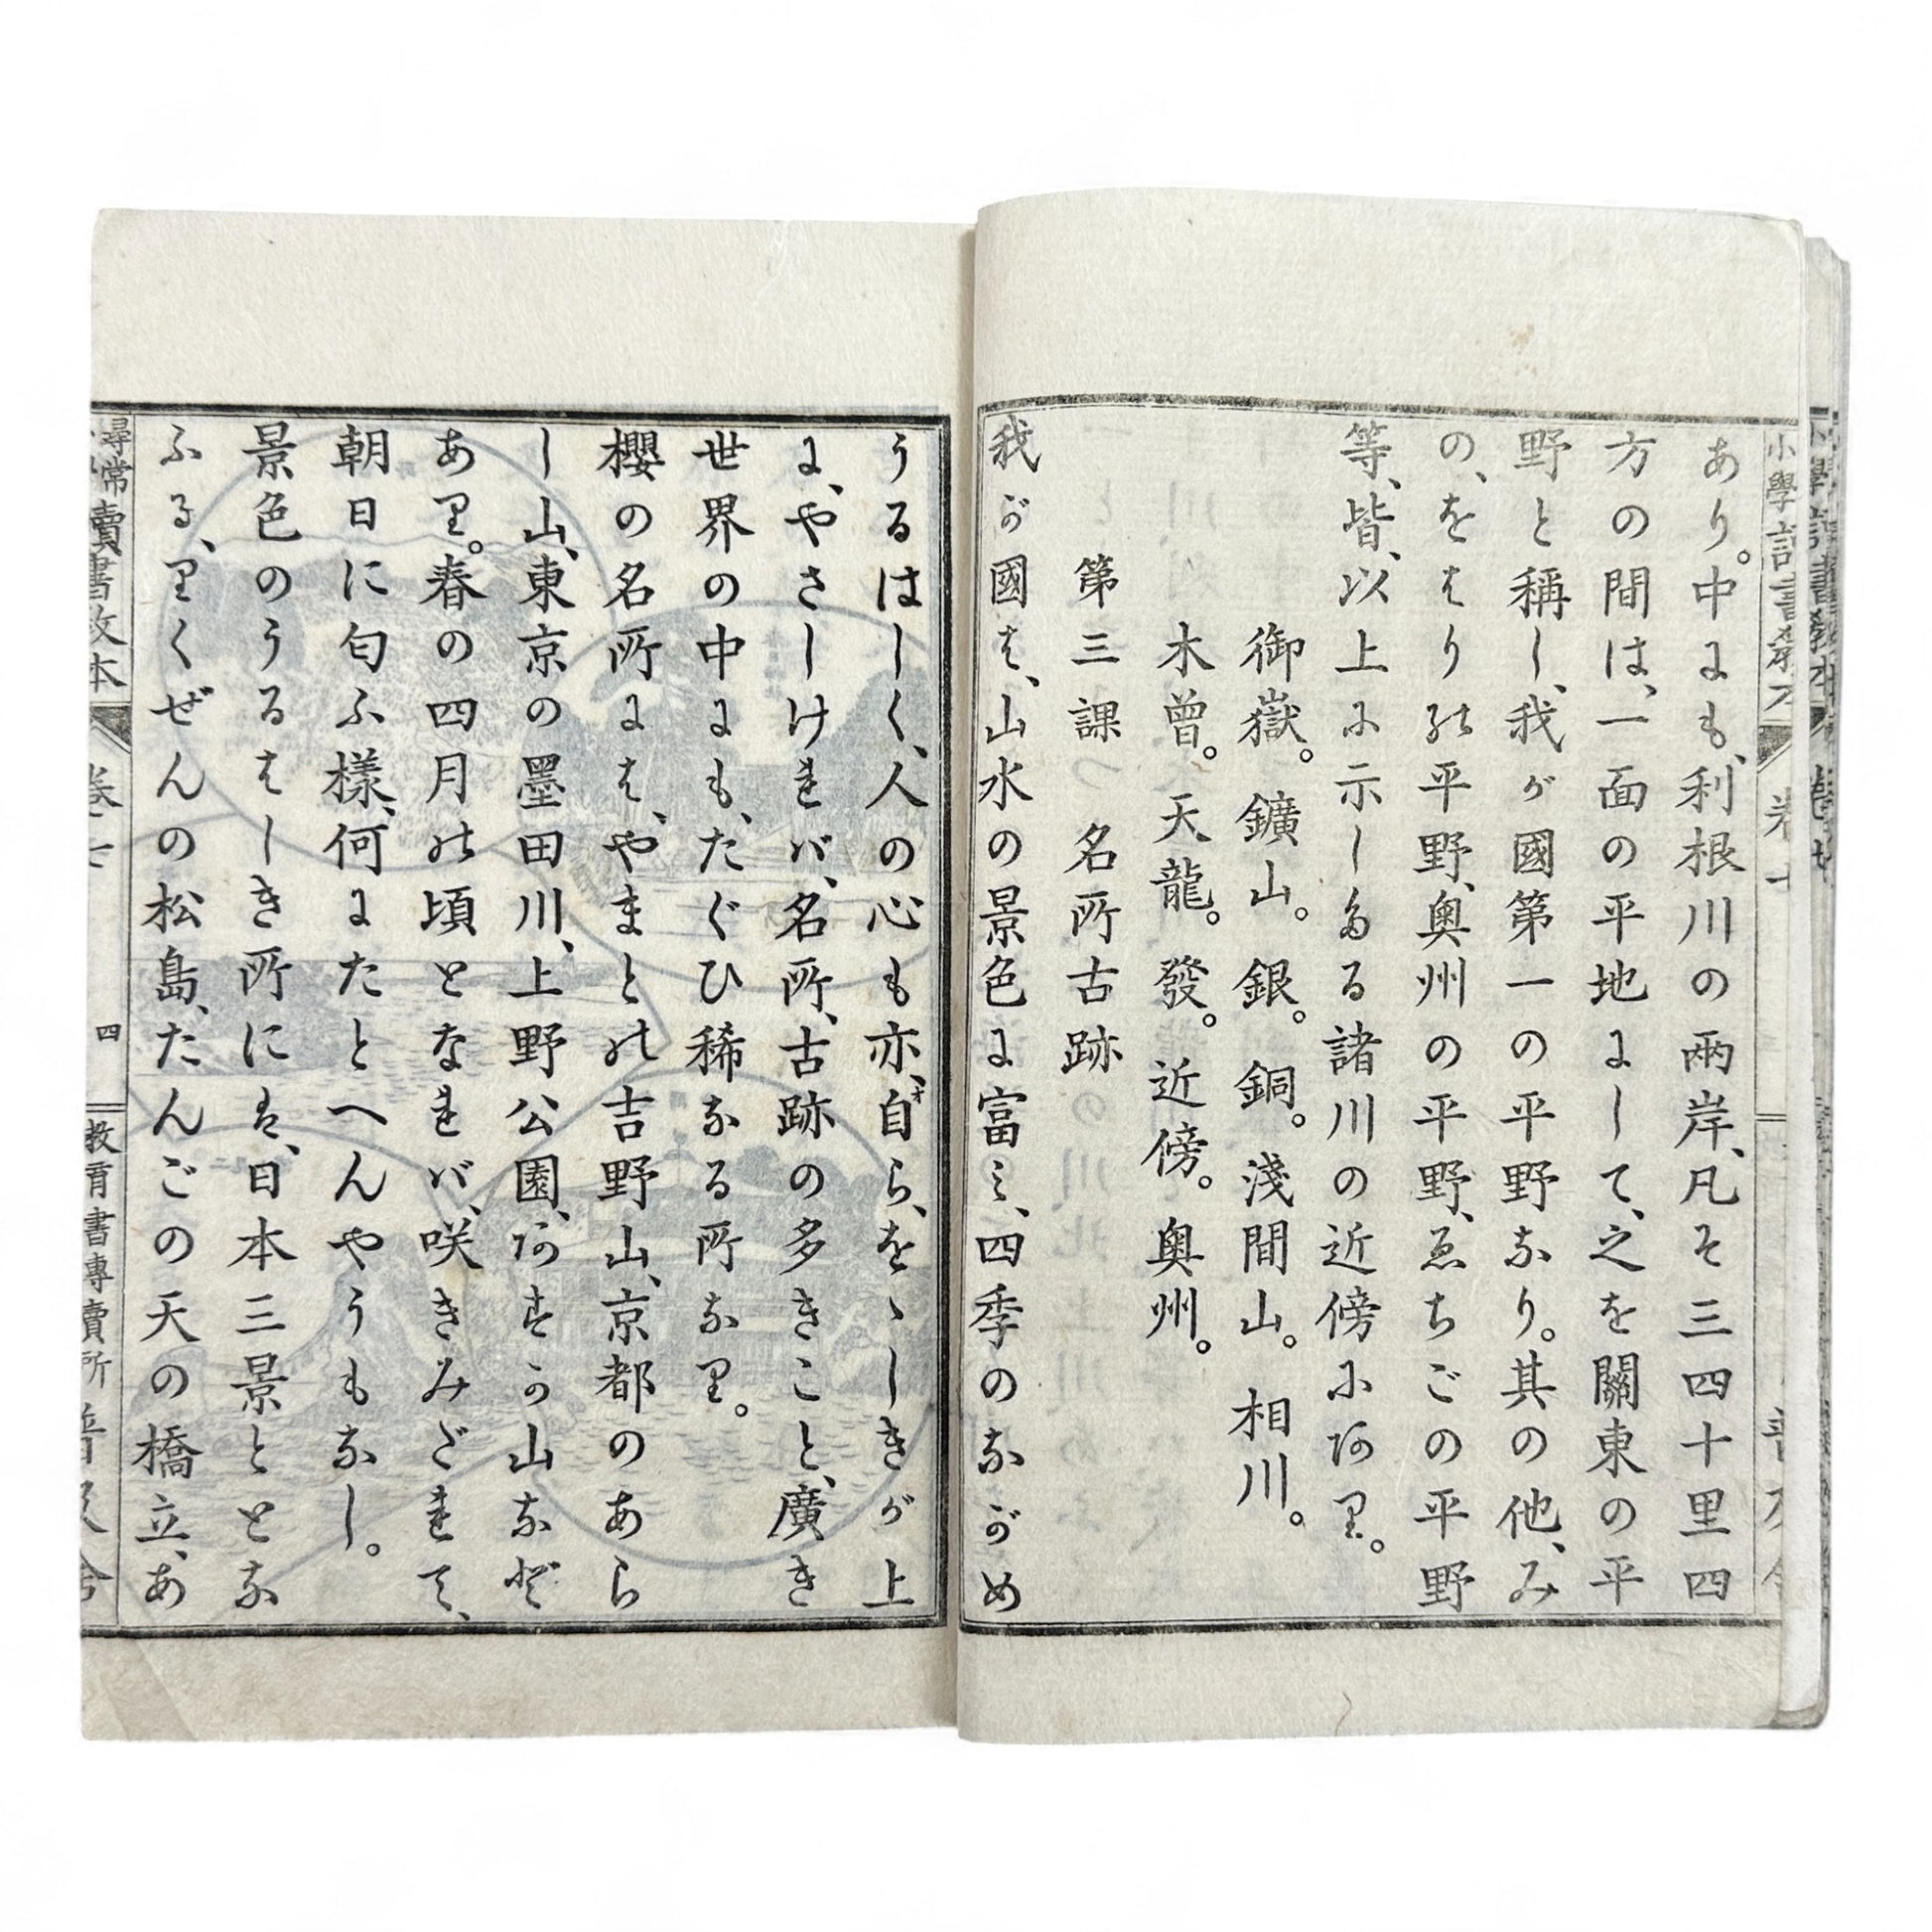 あり。中にも、利根川の兩岸、凡そ三四十里四
方の間は、一面の平地にして、之を關東の平
野と稱し、我が國第一の平野なり。其の他、み
の、をはりの平野、奥州の平野、ゑちごの平野
等、皆、以上に示したる諸川の近傍にあり。
御嶽。鑛山。銀。銅。淺間山。相川。
木曾。天龍。發。近傍。奥州。
第三課 名所古跡
我が國は、山水の景色に富み、四季のながめ
うるはしく、人の心も亦、自ら、をゝしきが上
オ
に、やさしければ、名所、古跡の多きこと、廣き
世界の中にも、たぐひ稀なる所なり。
櫻の名所には、やまとの吉野山、京都のあら
し山、東京の墨田川、上野公園、あすか山など
あり。春の四月の頃となれば、咲きみだれて、
朝日に匂ふ樣、何にたとへんやうもなし。
景色のうるはしき所には、日本三景ととな
ふる、りくぜんの松島、たんごの天の橋立、あ
尋常
讀書教本
卷七
四
教育書專賣所
普及舍